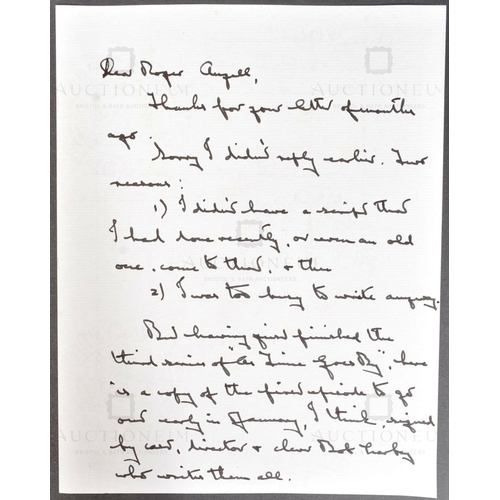 Dear Roger Angell,
Thanks for your letter of months
ago.
Sorry I didn't reply earlier. Two
reasons:
1) I didn't have a script that
I had done recently, or even an old
one, come to that, & then
2) I was too busy to write anyway.
But having just finished the
third series of "As Time Goes By", here
is a copy of the first episode to go
out early in January, I think, signed
by cast, director & clever Bob Larbey
who writes them all.
AUCTIONEUM